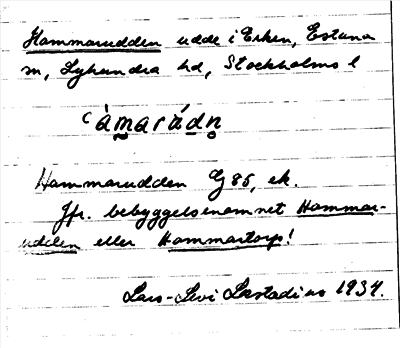 Hammarudden udde i Erken, Estuna
sn, Lyhundra hd, Stockholms l
Hammarudden G 85, ek.
Jfr. bebyggelsenamnet Hammar-
udden eller Hammartorp!
Lars-Levi Læstadius 1934.